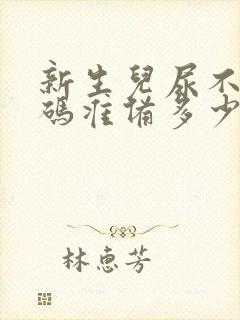 新生兒尿不
碼准備多少
林惠芳